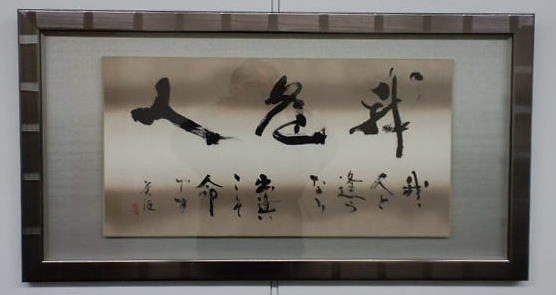 我逢人
我
人と
逢う
なり
出逢い
こそ
命